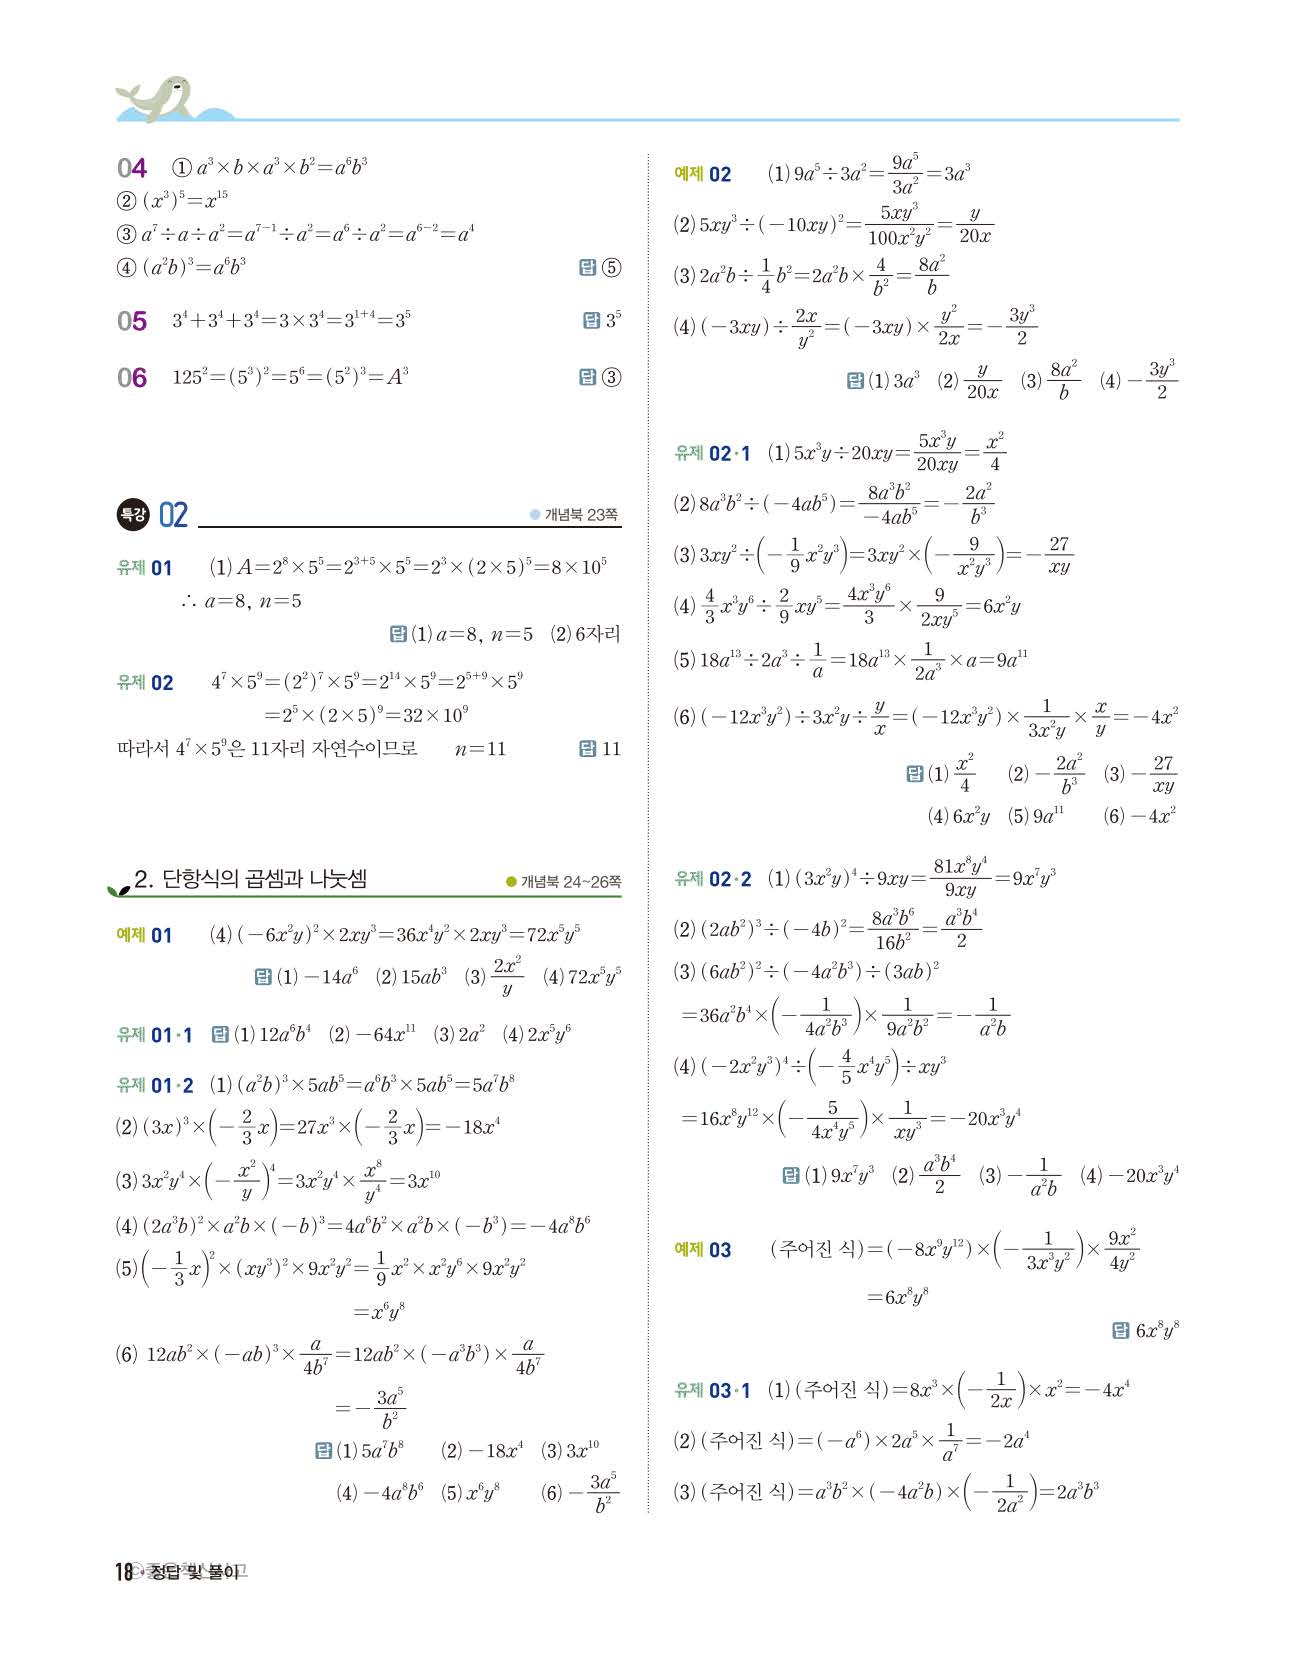 04 ① a³×b×a³×b²=a⁶b³
② (x³)⁵=x¹⁵
③ a⁷÷a÷a²=a⁷⁻¹÷a²=a⁶÷a²=a⁶⁻²=a⁴
④ (a²b)³=a⁶b³ 답 ⑤
05 3⁴+3⁴+3⁴=3×3⁴=3¹⁺⁴=3⁵ 답 3⁵
06 125²=(5³)²=5⁶=(5²)³=A³ 답 ③
특강 02 개념북 23쪽
유제 01 (1) A=2⁸×5⁵=2³⁺⁵×5⁵=2³×(2×5)⁵=8×10⁵
∴ a=8, n=5
답 (1) a=8, n=5 (2) 6자리
유제 02 4⁷×5⁹=(2²)⁷×5⁹=2¹⁴×5⁹=2⁵⁺⁹×5⁹
=2⁵×(2×5)⁹=32×10⁹
따라서 4⁷×5⁹은 11자리 자연수이므로 n=11 답 11
2. 단항식의 곱셈과 나눗셈 개념북 24~26쪽
예제 01 (4) (-6x²y)²×2xy³=36x⁴y²×2xy³=72x⁵y⁵
답 (1) -14a⁶ (2) 15ab³ (3) 2x²/y (4) 72x⁵y⁵
유제 01·1 답 (1) 12a⁶b⁴ (2) -64x¹¹ (3) 2a² (4) 2x⁵y⁶
유제 01·2 (1) (a²b)³×5ab⁵=a⁶b³×5ab⁵=5a⁷b⁸
(2) (3x)³×(-2/3 x)=27x³×(-2/3 x)=-18x⁴
(3) 3x²y⁴×(-x²/y)⁴=3x²y⁴×x⁸/y⁴=3x¹⁰
(4) (2a³b)²×a²b×(-b)³=4a⁶b²×a²b×(-b³)=-4a⁸b⁶
(5) (-1/3 x)²×(xy³)²×9x²y²=1/9 x²×x²y⁶×9x²y²
=x⁶y⁸
(6) 12ab²×(-ab)³×a/4b⁷=12ab²×(-a³b³)×a/4b⁷
=-3a⁵/b²
답 (1) 5a⁷b⁸ (2) -18x⁴ (3) 3x¹⁰
(4) -4a⁸b⁶ (5) x⁶y⁸ (6) -3a⁵/b²
예제 02 (1) 9a⁵÷3a²=9a⁵/3a²=3a³
(2) 5xy³÷(-10xy)²=5xy³/100x²y²=y/20x
(3) 2a²b÷1/4 b²=2a²b×4/b²=8a²/b
(4) (-3xy)÷2x/y²=(-3xy)×y²/2x=-3y³/2
답 (1) 3a³ (2) y/20x (3) 8a²/b (4) -3y³/2
유제 02·1 (1) 5x³y÷20xy=5x³y/20xy=x²/4
(2) 8a³b²÷(-4ab⁵)=8a³b²/-4ab⁵=-2a²/b³
(3) 3xy²÷(-1/9 x²y³)=3xy²×(-9/x²y³)=-27/xy
(4) 4/3 x³y⁶÷2/9 xy⁵=4x³y⁶/3×9/2xy⁵=6x²y
(5) 18a¹³÷2a³÷1/a=18a¹³×1/2a³×a=9a¹¹
(6) (-12x³y²)÷3x²y÷y/x=(-12x³y²)×1/3x²y×x/y=-4x²
답 (1) x²/4 (2) -2a²/b³ (3) -27/xy
(4) 6x²y (5) 9a¹¹ (6) -4x²
유제 02·2 (1) (3x²y)⁴÷9xy=81x⁸y⁴/9xy=9x⁷y³
(2) (2ab²)³÷(-4b)²=8a³b⁶/16b²=a³b⁴/2
(3) (6ab²)²÷(-4a²b³)÷(3ab)²
=36a²b⁴×(-1/4a²b³)×1/9a²b²=-1/a²b
(4) (-2x²y³)⁴÷(-4/5 x⁴y⁵)÷xy³
=16x⁸y¹²×(-5/4x⁴y⁵)×1/xy³=-20x³y⁴
답 (1) 9x⁷y³ (2) a³b⁴/2 (3) -1/a²b (4) -20x³y⁴
예제 03 (주어진 식)=(-8x⁹y¹²)×(-1/3x³y²)×9x²/4y²
=6x⁸y⁸
답 6x⁸y⁸
유제 03·1 (1) (주어진 식)=8x³×(-1/2x)×x²=-4x⁴
(2) (주어진 식)=(-a⁶)×2a⁵×1/a⁷=-2a⁴
(3) (주어진 식)=a³b²×(-4a²b)×(-1/2a²)=2a³b³
18 · 정답 및 풀이